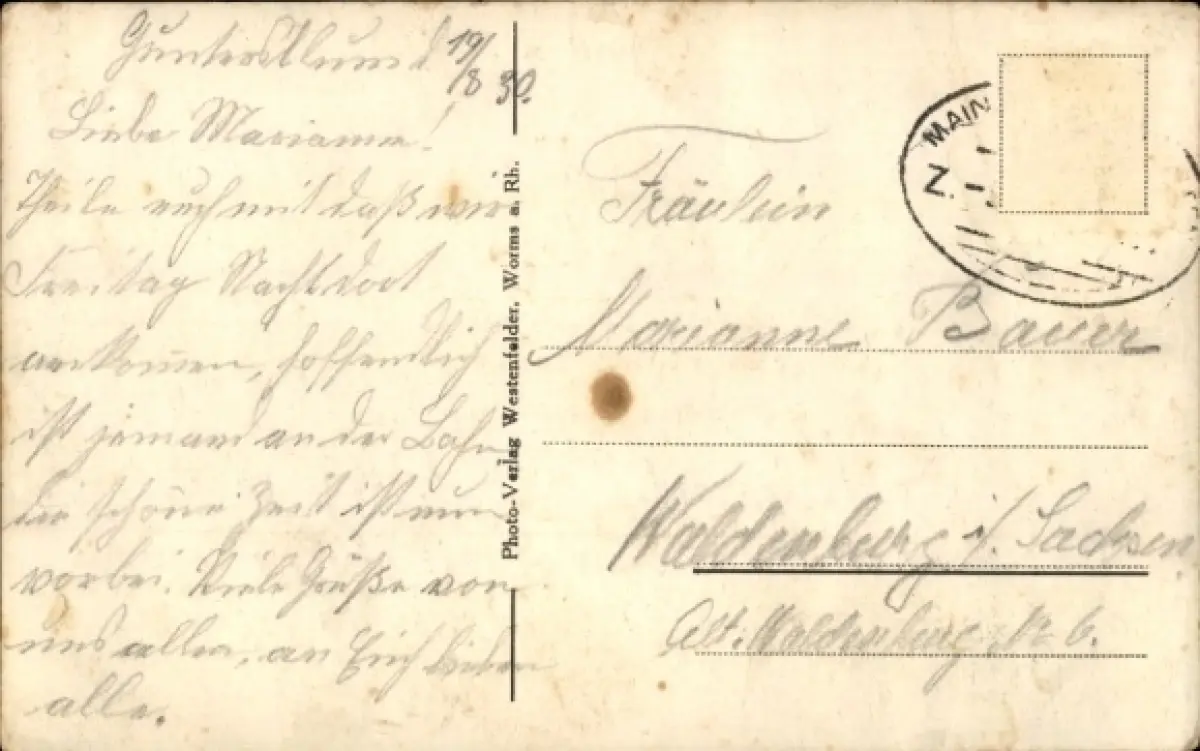 Guntersblum d. 19/8 30.
Liebe Marianne!
Theile euch mit daß wir
Freitag Nacht dort
ankomen, hoffendlich
ist jemand an der Bahn
die schöne Zeit ist nun
vorbei. Viele Grüße von
uns allen, an Euch
alle.
Photo-Verlag Westenfelder, Worms a. Rh.
MAIN
N
Fräulein
Marianne Bauer
Waldenburg i/ Sachsen
Alt. Waldenburg No 6.